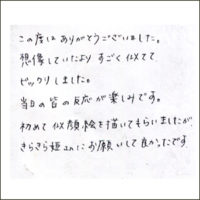 この度は ありがとうございました。
想像していたより すごく似てて
ビックリしました。
当日の皆の反応が楽しみです。
初めて 似顔絵を描いてもらいましたが、
きらきら姫さんに お願いして良かったです